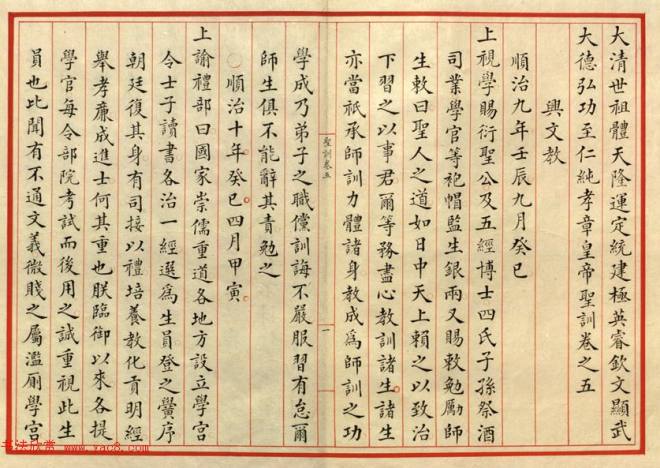 大清世祖體天隆運定統建極英睿欽文顯武
大德弘功至仁純孝章皇帝聖訓卷之五
興文教
順治九年壬辰九月癸巳
上視學賜衍聖公及五經博士四氏子孫祭酒
司業學官等袍帽監生銀兩又賜敕勉勵師
生敕曰聖人之道如日中天上賴之以致治
下習之以事君爾等務盡心教訓諸生諸生
亦當祇承師訓力體諸身教成為師訓之功
聖訓卷五
一
學成乃弟子之職儻訓誨不嚴服習有怠爾
師生俱不能辭其責勉之
○順治十年癸巳四月甲寅
上諭禮部曰國家崇儒重道各地方設立學宮
令士子讀書各治一經選為生員登之黌序
朝廷復其身有司接以禮培養教化貢明經
舉孝廉成進士何其重也朕臨御以來各提
學官每令部院考試而後用之誠重視此生
員也比聞有不通文義微賤之屬濫廁學宮
书法欣赏 www.yac8.com